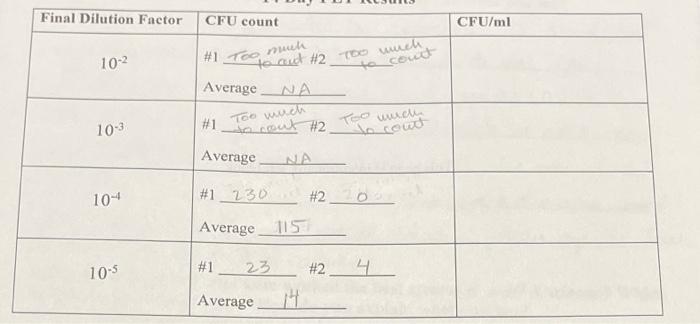 Final Dilution Factor CFU count CFU/ml
10-2 #1 Too much to cout #2 Too much to cout
Average NA
10-3 #1 Too much to cout #2 Too much to cout
Average NA
10-4 #1 230 #2 0
Average 115
10-5 #1 23 #2 4
Average 14